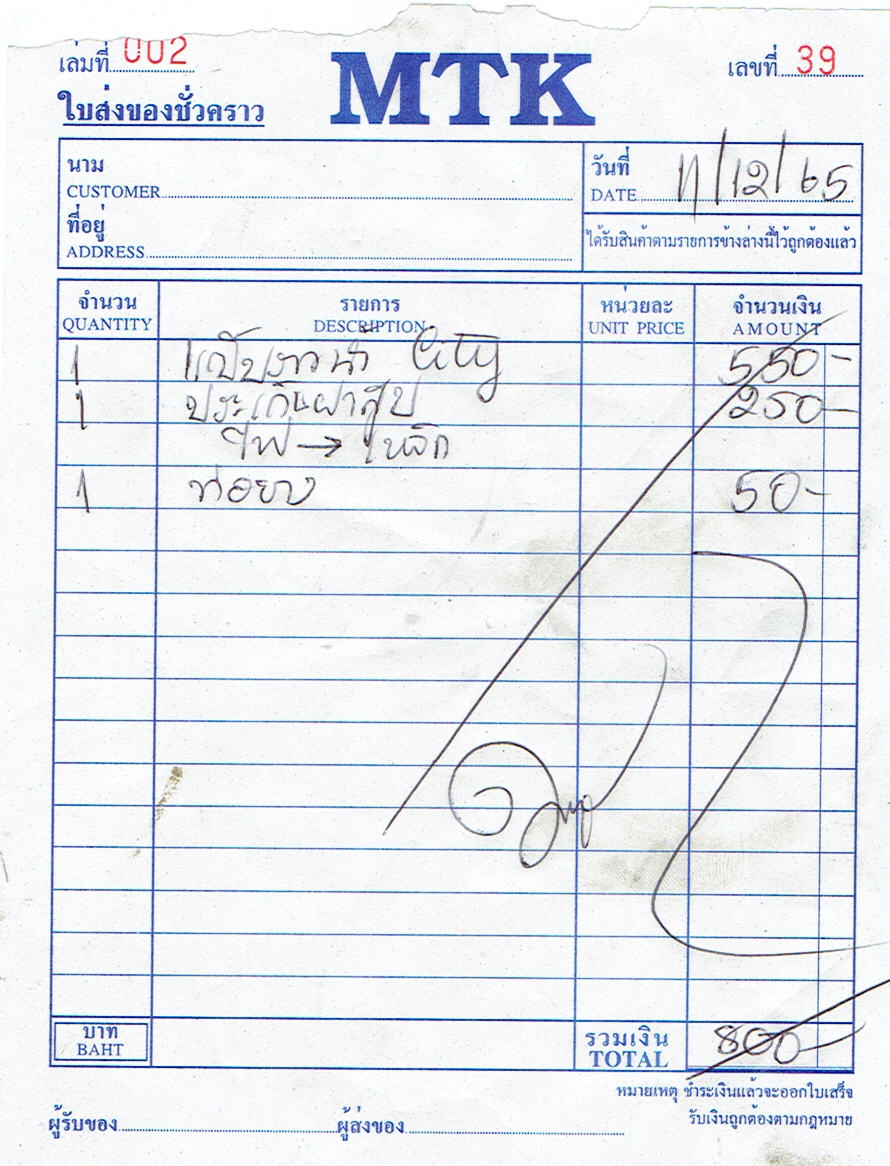 เล่มที่ 002
MTK
เลขที่ 39
ใบส่งของชั่วคราว
นาม
CUSTOMER
ที่อยู่
ADDRESS
วันที่
DATE 11/12/65
ได้รับสินค้าตามรายการข้างล่างนี้ไว้ถูกต้องแล้ว
จำนวน รายการ หน่วยละ จำนวนเงิน
QUANTITY DESCRIPTION UNIT PRICE AMOUNT
1 City 550-
1 ประเก็นฝาสูบ 250-
ไฟ → เหล็ก
1 ท่อยาง 50-
บาท รวมเงิน
BAHT TOTAL 800-
หมายเหตุ ชำระเงินแล้วจะออกใบเสร็จ
รับเงินถูกต้องตามกฎหมาย
ผู้รับของ ผู้ส่งของ